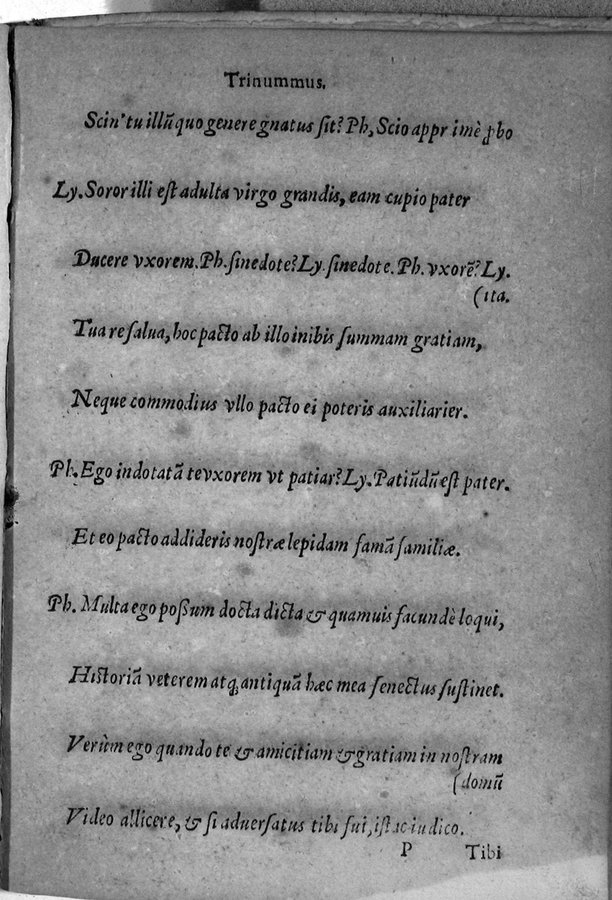 Trinummus.
Scin' tu illũ quo genere gnatus sit? Ph, Scio apprimè ꝓbo
Ly. Soror illi est adulta virgo grandis, eam cupio pater
Ducere vxorem. Ph. sine dote? Ly. sine dote. Ph. vxorẽ? Ly.
(ita.
Tua re salua, hoc pacto ab illo inibis summam gratiam,
Neque commodius vllo pacto ei poteris auxiliarier.
Ph. Ego indotatã te vxorem vt patiar? Ly. Patiũdũ est pater.
Et eo pacto addideris nostræ lepidam famã familiæ.
Ph. Multa ego poßum docta dicta & quamuis facundè loqui,
Historiã veterem atq; antiquã hæc mea senectus sustinet.
Verùm ego quando te & amicitiam & gratiam in nostram
(domũ
Video allicere, & si aduersatus tibi fui, istac iudico.
P Tibi